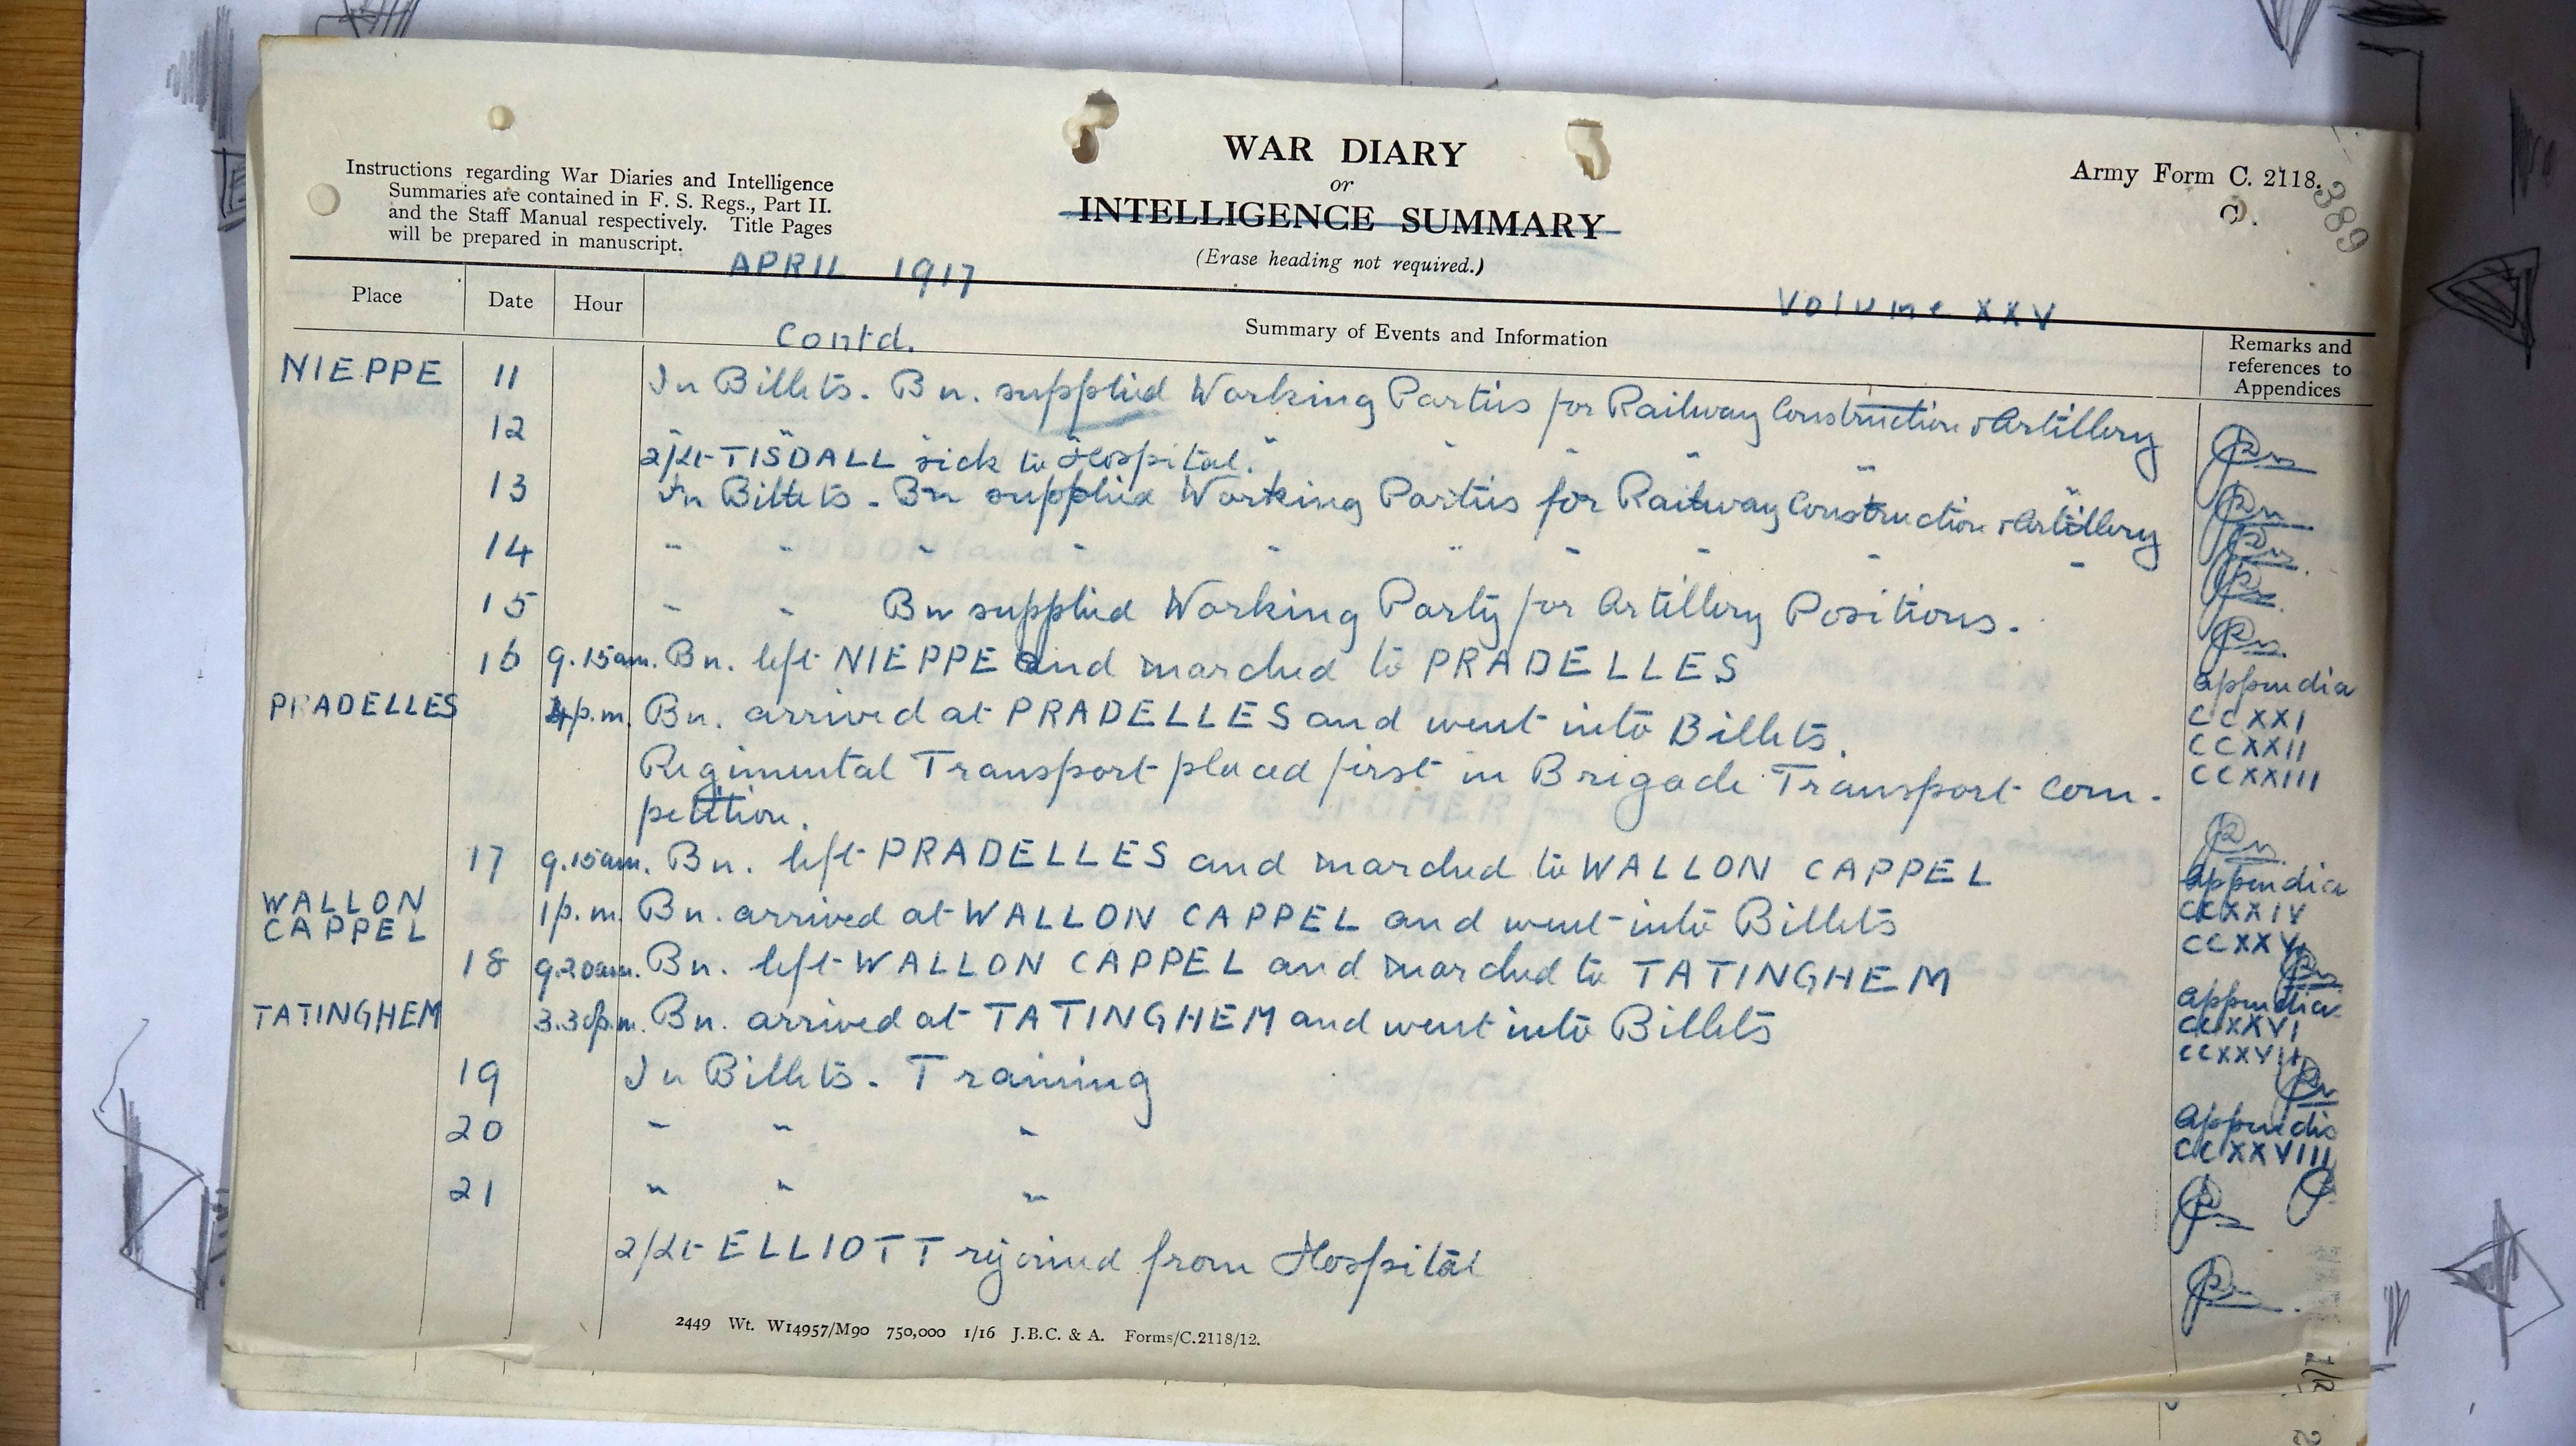 Instructions regarding War Diaries and Intelligence
Summaries are contained in F. S. Regs., Part II.
and the Staff Manual respectively. Title Pages
will be prepared in manuscript.
WAR DIARY
or
INTELLIGENCE SUMMARY
(Erase heading not required.)
Army Form C. 2118.
389
APRIL 1917
Volume XXV
Place Date Hour Summary of Events and Information Remarks and references to Appendices
Contd.
NIEPPE 11 In Billets. Bn. supplied Working Parties for Railway Construction & Artillery
12 " " " " " " "
2/Lt TISDALL sick to Hospital.
13 In Billets. Bn supplied Working Parties for Railway Construction & Artillery
14 " " " " " " " " " "
15 " " Bn supplied Working Party for Artillery Positions.
16 9.15am. Bn. left NIEPPE and marched to PRADELLES Appendix
PRADELLES 4p.m. Bn. arrived at PRADELLES and went into Billets. CCXXI
CCXXII
Regimental Transport placed first in Brigade Transport Com- CCXXIII
petition.
17 9.15am. Bn. left PRADELLES and marched to WALLON CAPPEL Appendix
WALLON CAPPEL 1p.m. Bn. arrived at WALLON CAPPEL and went into Billets CCXXIV
CCXXV
18 9.20am. Bn. left WALLON CAPPEL and marched to TATINGHEM Appendix
TATINGHEM 3.30p.m. Bn. arrived at TATINGHEM and went into Billets CCXXVI
CCXXVII
19 In Billets. Training
20 " " " Appendix
CCXXVIII
21 " " "
2/Lt ELLIOTT rejoined from Hospital
2449 Wt. W14957/M90 750,000 1/16 J.B.C. & A. Forms/C.2118/12.